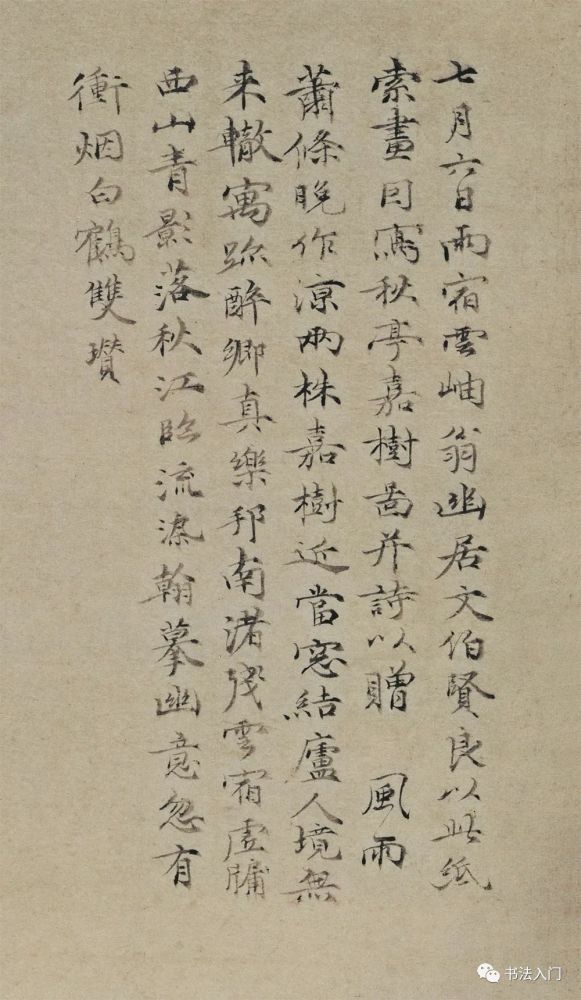 七月六日雨宿雲岫翁幽居文伯賢良以此紙
索畫因寫秋亭嘉樹啚并詩以贈 風雨
蕭條晚作凉兩株嘉樹近當窓結廬人境無
来轍寓跡醉鄉真樂邦南渚殘雲宿虛牖
西山青影落秋江臨流染翰摹幽意忽有
衝烟白鶴雙 瓚
书法入门